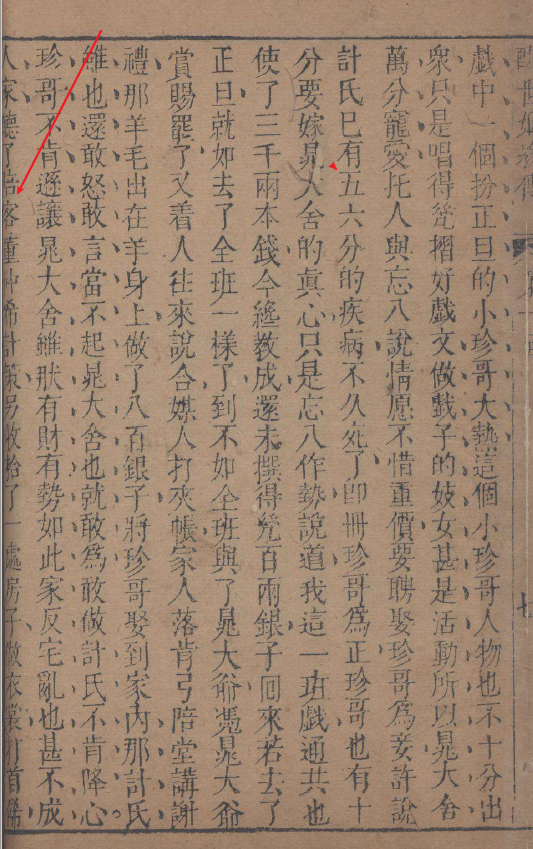 戲中一個扮正旦的小珍哥大熱這個小珍哥人物也不十分出
衆只是唱得㡬摺好戲文做戲子的妓女甚是活動所以晁大舍
萬分寵愛托人與忘八說情愿不惜重價要聘娶珍哥爲妾許說
計氏已有五六分的疾病不久死了卽冊珍哥爲正珍哥也有十
分要嫁晁大舍的眞心只是忘八作勢說道我這一班戲通共也
使了三千兩本錢今纔教成還未撰得㡬百兩銀子囘來若去了
正旦就如去了全班一樣了到不如全班與了晁大爺憑晁大爺
賞賜罷了又着人往來說合媒人打夾帳家人落背弓陪堂講謝
禮那羊毛出在羊身上做了八百銀子將珍哥娶到家內那計氏
雖也還敢怒敢言當不起晁大舍也就敢爲敢做計氏不肯降心
珍哥不肯遜讓晁大舍雖肰有財有勢如此家反宅亂也甚不成
人家聽了陪客董仲希計策另收拾了一處房子做衣裳打首